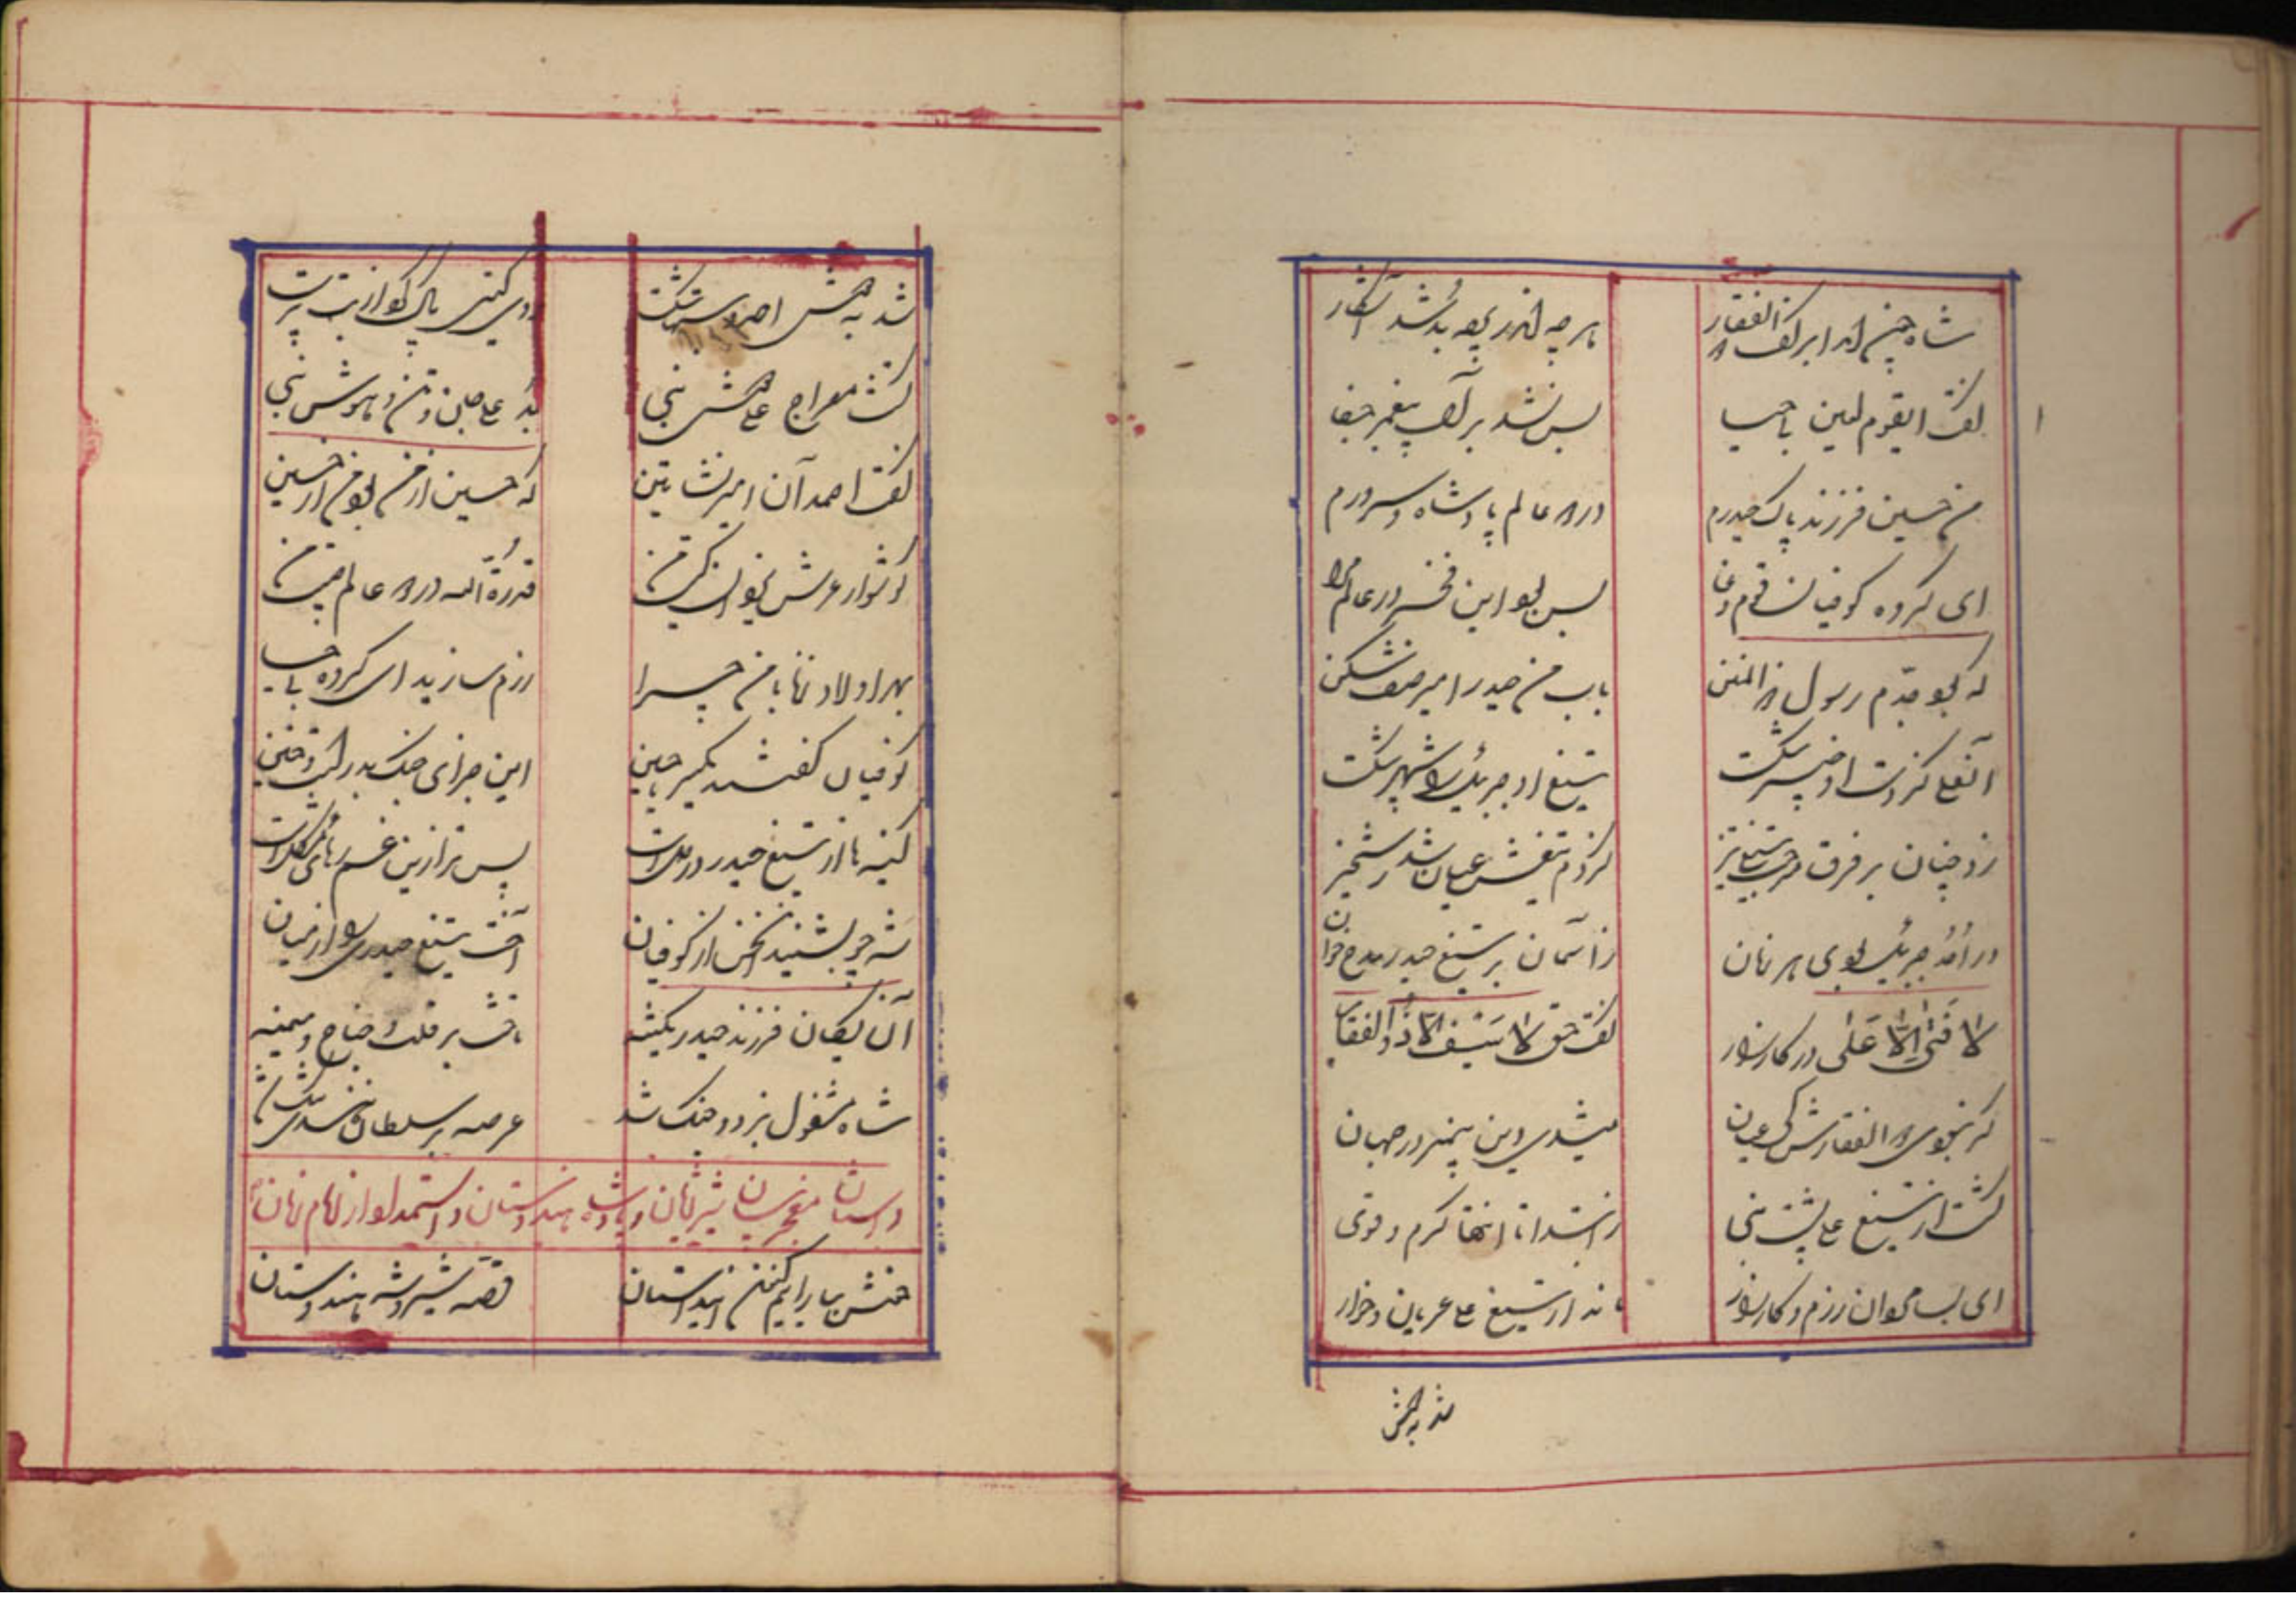 شاه چنین لندا بر کف ذالفقار
هر چه اندر بود بد شد آشکار
گفت ایقوم لعین با حیا
بس نشد بر آل پیغمبر جفا
من حسین فرزند پاک حیدرم
در دو عالم پادشاه و سرورم
ای گروه کوفیان قوم دغا
بس بود این فخر در عالم مرا
که بود جدم رسول ذوالمنن
باب من حیدر امیر صف شکن
آنعلی کز دست او خیبر شکست
تیغ او جبرئیل را شهپر شکست
زد چنان بر فرق مرحب تیغ تیز
کز دم تیغش عیان شد رستخیز
در اُحُد جبرئیل بودی هر زمان
ز آسمان بر تیغ حیدر مدح خوان
لا فَتیٰ اِلّا عَلی در کارزار
گفت حق لا سَیف اِلّا ذُوالفقار
گر نبودی ذالفقارش کی عیان
میشدی دین پیمبر در جهان
گشت از تیغ علی پشت نبی
ز ابتدا تا انتها گرم و قوی
ای بسا میدان رزم و کارزار
ماند از تیغ علی عریان و خوار
شد به دوشش
شد به دوشش احمد بت شکست
روی گیتی پاک کو از بت پرست
گشت معراج علی دوش نبی
بُد علی جان و تن و هوش نبی
گفت احمد آن امیر نشأتین
که حسین از من بود من از حسین
گوشوار عرش بود این
قُرّة العین در دو عالم
بهر اولاد زنا با من چرا
رزم سازید ای گروه با حیا
کوفیان گفتند یکسر با حسین
این جزای جنگ بدر است و حنین
کینه ها از تیغ حیدر در دل است
پس ترا زین غم رهائی مشکل است
شه چو بشنید این سخن از کوفیان
آخت تیغ حیدری را از میان
آن یگان فرزند حیدر یکتنه
تاخت بر قلب و جناح و میمنه
شاه مشغول نبرد و جنگ شد
عرصه بر سلطان خوبان تنگ شد
داستان معجز بیان شیر ژیان و پادشه هندوستان و استمداد از امام زمان
خنش بیارایم کنون این داستان
قصه شیر و شه هندوستان